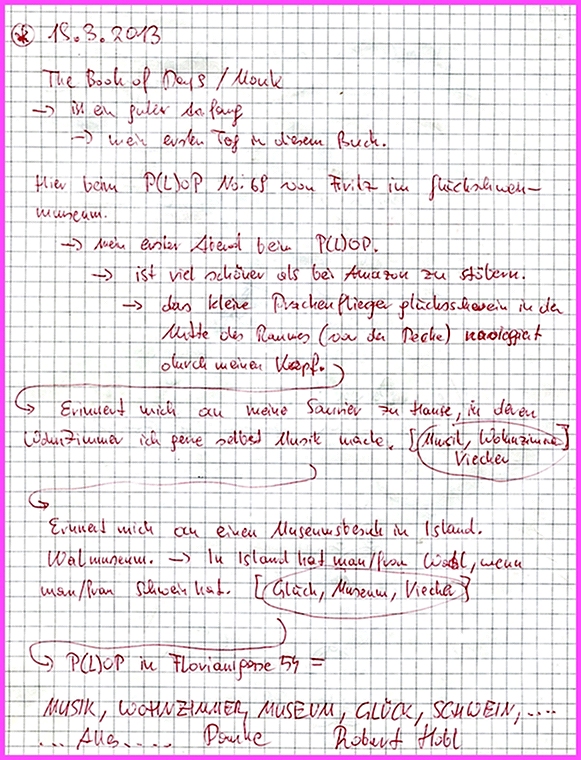 15.3.2013
The Book of Days / Monk
→ ist ein guter Anfang
→ mein ersten Tag in diesem Buch.
Hier beim P(L)OP No. 69 von Fritz im glückschwein-
museum.
→ mein erster Abend beim P(L)OP.
→ ist viel schöner als bei Amazon zu stöbern.
→ das kleine Drachenflieger glücksschwein in der
Mitte des Raumes (von der Decke) navigiert
durch meinen Kopf.
Erinnert mich an meine Saurier zu Hause, in deren
Wohnzimmer ich gerne selbst Musik mache. [Musik, Wohnzimmer
Viecher]
Erinnert mich an einen Museumsbesuch in Island.
Walmuseum. → In Island hat man/frau Wahl, wenn
man/frau Schwein hat. [Glück, Museum, Viecher]
P(L)OP in Florianigasse 54 =
MUSIK, WOHNZIMMER, MUSEUM, GLÜCK, SCHWEIN, ....
... Alles ..... Danke Robert Hobl